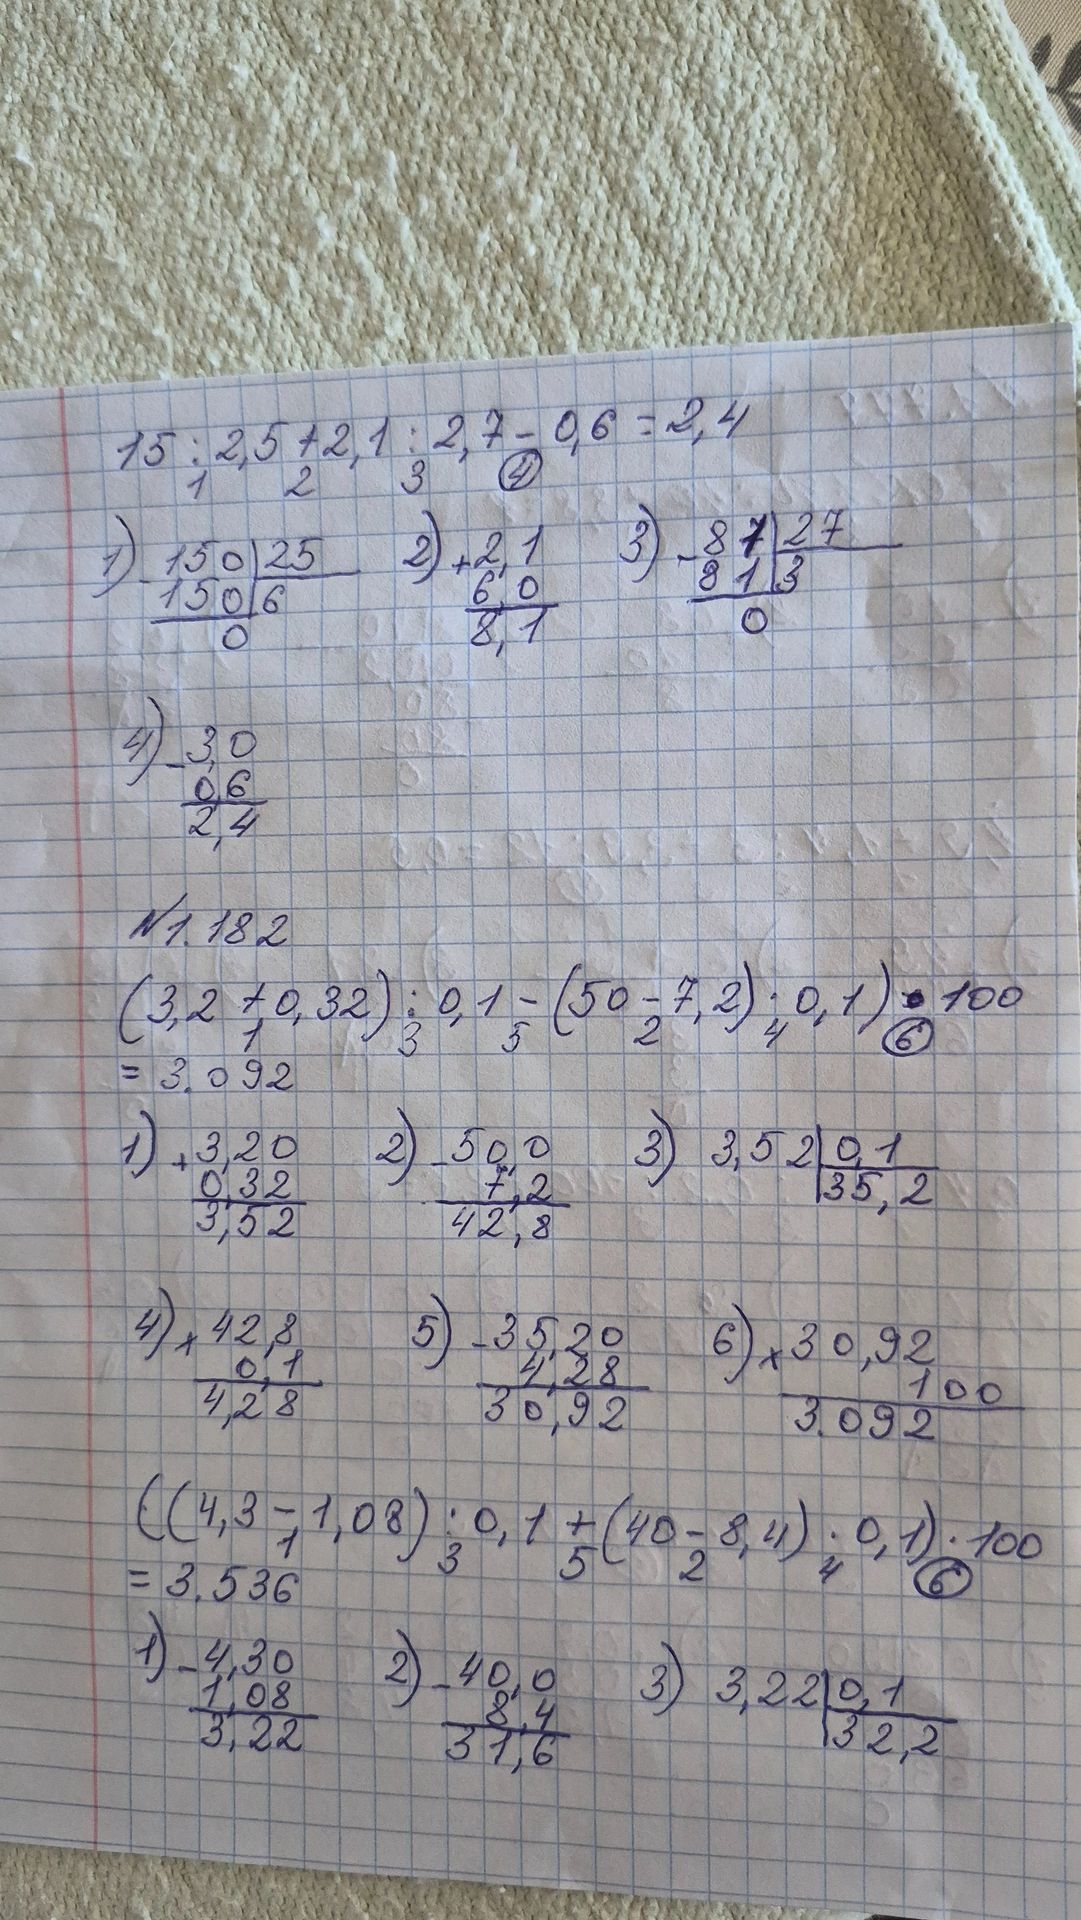 15 : 2,5 + 2,1 : 2,7 - 0,6 = 2,4
1 2 3 4
1) - 150 | 25 2) + 2,1 3) - 81 | 27
150 | 6 6,0 81 | 3
0 8,1 0
4) - 3,0
0,6
2,4
№1.182
(3,2 + 0,32) : 0,1 - (50 - 7,2) · 0,1) · 100
1 3 5 2 4 6
= 3.092
1) + 3,20 2) - 50,0 3) 3,52 | 0,1
0,32 7,2 35,2
3,52 42,8
4) x 42,8 5) - 35,20 6) x 30,92
0,1 4,28 100
4,28 30,92 3.092
((4,3 - 1,08) : 0,1 + (40 - 8,4) · 0,1) · 100
1 3 5 2 4 6
= 3.536
1) - 4,30 2) - 40,0 3) 3,22 | 0,1
1,08 8,4 32,2
3,22 31,6